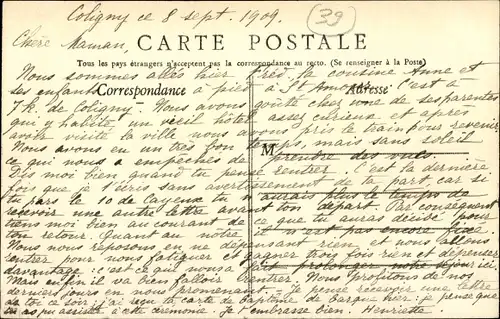 Coligny ce 8 sept. 1909.
39
Chère Maman,
CARTE POSTALE
Tous les pays étrangers n'acceptent pas la correspondance au recto. (Se renseigner à la Poste)
Nous sommes allés hier, la cousine Anne et
ses enfants à pied à St Amour c'est à
Correspondance
Adresse
7 k. de Coligny - Nous avons goûté chez une de ses parentes
qui y habite un vieil hôtel assez curieux et après
avoir visité la ville nous avons pris le train pour revenir
Nous avons eu un très bon temps, mais sans soleil
M
ce qui nous a empêchés de prendre des vues.
Dis moi bien quand tu penses rentrer. C'est la dernière
fois que je t'écris sans avertissement de ta part car si
tu pars le 10 de Cayeux tu n'aurais plus le temps de
recevoir une autre lettre avant ton départ. Par conséquent
tiens moi bien au courant de ce que tu auras décidé pour
ton retour. Quant au nôtre il n'est pas encore fixé.
Nous nous reposons en ne dépensant rien et nous allons
rentrer pour nous fatiguer et gagner trois fois rien et dépenser
davantage : c'est ce que nous a fait prolonger notre séjour ici.
Mais enfin il va bien falloir rentrer. Nous profitons de nos
derniers jours en nous promenant. - Je pense recevoir une lettre
de toi ce soir ; j'ai reçu ta carte de baptême de barque hier : je pense que
tu as pu assister à cette cérémonie. Je t'embrasse bien. Henriette.